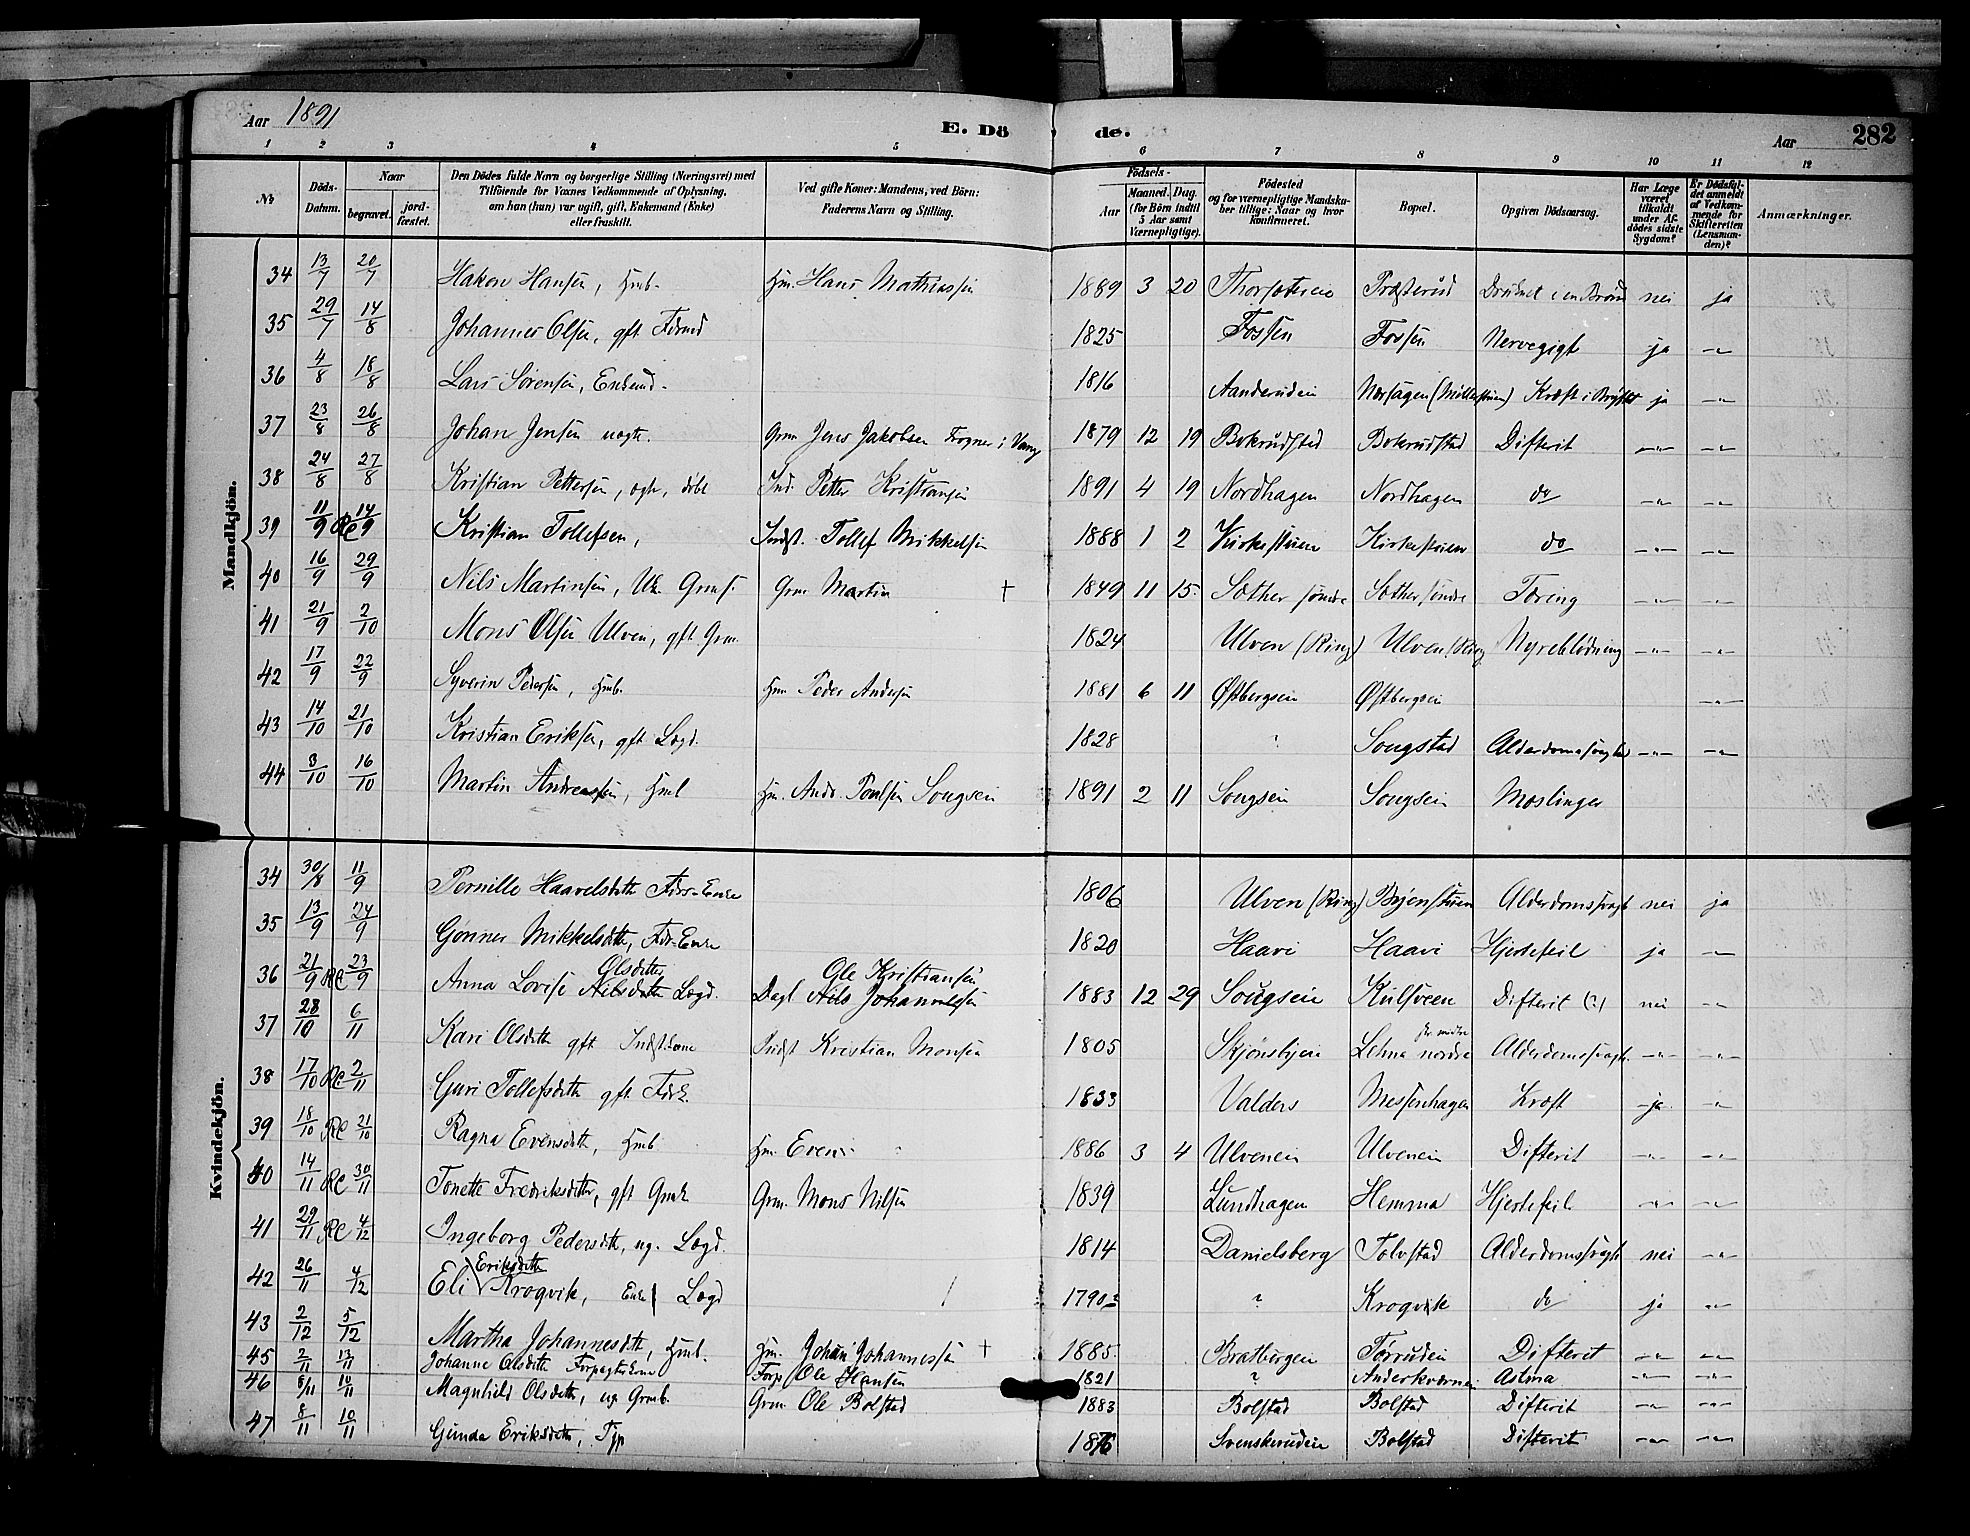 Aar 1891 E. Dö de. Aar 282
1 2 3 4 5 6 7 8 9 10 11 12
No Döds-Datum. Naar begravet. jord-fæstet. Den Dödes fulde Navn og borgerlige Stilling (Næringsvei) med Tilföiende for Voxnes Vedkommende af Oplysning, om han (hun) var ugift, gift, Enkemand (Enke) eller fraskilt. Ved gifte Koner: Mandens, ved Börn: Faderens Navn og Stilling. Födsels- Aar Maaned. Dag. (for Börn indtil 5 Aar samt Værnepligtige). Födested og for værnepligtige Mandskaber tillige: Naar og hvor konfirmeret. Bopæl. Opgiven Dödsaarsag. Har Læge været tilkaldt under Afdödes sidste Sygdom? Er Dödsfaldet anmeldt af Vedkommende for Skifteretten (Lensmanden)? Anmærkninger.
Mandkjön.
34 13/7 20/7 Hakon Hansen, Hmb. Hm. Hans Mathiassen 1889 3 20 Præsterud Druknet i en Brönd nei ja
35 29/7 14/8 Johannes Olsen, gft 1825 Fossen Fossen Nervegigt ja -"-
36 4/8 18/8 Lars Sørensen, 1816 Aanderudein Norhagen Kræft i Brystet ja -"-
37 23/8 26/8 Johan Jensen uægte. Grm Jens Jakobsen Frogner i Vang 1879 12 19 Bokrudstad Bokrudstad Difterit -"- -"-
38 24/8 27/8 Kristian Pettersen, ægte, döbt Ind. Petter Kristiansen 1891 4 19 Nordhagen Nordhagen do -"- -"-
39 11/9 RC 14/9 Kristian Tollefsen, Indst. Tollef Mikkelsen 1888 1 2 Kirkestuen Kirkestuen do -"- -"-
40 16/9 29/9 Nils Martinsen, Grm. Martin † 1849 11 15 Sæther söndre Sæther söndre Tæring -"- -"-
41 21/9 2/10 Mons Olsen Ulven, gft. Grm. 1824 Ulven (Ring) Ulven (Ring Nyreblödning -"- -"-
42 17/9 22/9 Syverin Pedersen, Hmb. Hm Peder Andersen 1881 6 11 Østbergsein Østbergsein -"-
43 14/10 21/10 Kristian Eriksen, gft Lægd. 1828 ? Songstad Alderdomssvaghed -"- -"-
44 3/10 16/10 Martin Andreassen, Hmb Hm. Andr. Poulsen Songsein 1891 2 11 Songsein Songsein Meslinger
Kvindekjön.
34 30/8 11/9 Pernille Haavelsdtr Enke 1806 Ulven (Ring) Alderdomssvagh nei ja
35 13/9 24/9 Gönner Mikkelsdtr, Enke 1820 Haavi Haavi Hjertefeil ja -"-
Olsdatter Ole Kristiansen
36 21/9 RC 23/9 Anna Lovise Nilsdatter Lægd. Dagl Nils Johannesen 1883 12 29 Songsein Kulsveen Difterit (?) nei -"-
37 28/10 6/11 Kari Olsdtr gft Indst.kone Indst Kristian Monsen 1805 Skjönsbyein Lehna nordre Alderdomssvagh. -"- -"-
38 17/10 RC 2/11 Guri Tollefsdtr gft 1833 Valders Messenhagen Kræft ja -"-
39 18/10 RC 21/10 Ragna Evensdtr, Hmb Hm. Even 1886 3 4 Ulvenein Ulvenein Difterit -"- -"-
40 14/11 RC 30/11 Tonette Fredriksdtr, gft Gmk Grm. Mons Nilsen 1839 Lundhagen Hemma Hjertefeil -"- -"-
41 29/11 RC 4/12 Ingeborg Pedersdtr, ug. Lægd. 1814 Danielsberg Tolvstad Alderdomssvagh nei -"-
Eriksdtr
42 26/11 4/12 Eli Krogvik, Enke Lægd 1790? ? Krogvik do ja -"-
43 2/12 5/12 Martha Johannesdtr, Hmb. Hm. Johan Johannessen † 1885 Bratbergen Törrudein Difterit -"- -"-
45 2/11 13/11 Johanne Olsdtr Forpagterkone Forp Ole Hansen 1821 ? Anderkværnen Astma -"- -"-
46 8/11 10/11 Magnhild Olsdtr, ug Grmb. Grm. Ole Bolstad 1883 Bolstad Bolstad Difterit -"- -"-
47 8/11 10/11 Gunda Eriksdtr, Tjp 1876 Svenskerudein Bolstad Difterit -"- -"-